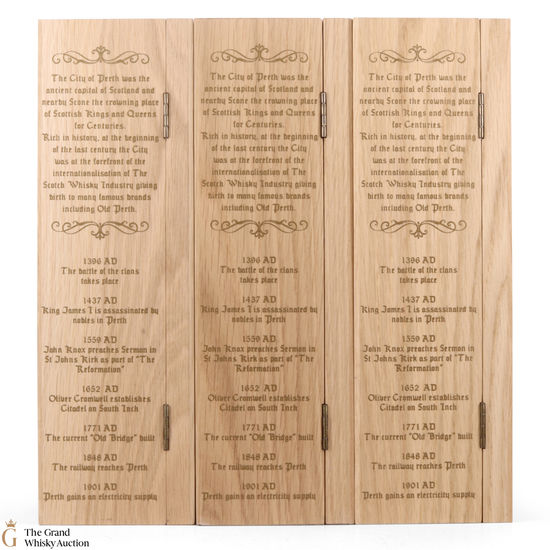 The City of Perth was the
ancient capital of Scotland and
nearby Scone the crowning place
of Scottish Kings and Queens
for Centuries.
Rich in history, at the beginning
of the last century the City
was at the forefront of the
internationalisation of The
Scotch Whisky Industry giving
birth to many famous brands
including Old Perth.
1396 AD
The battle of the clans
takes place
1437 AD
King James I is assassinated by
nobles in Perth
1559 AD
John Knox preaches Sermon in
St Johns Kirk as part of "The
Reformation"
1652 AD
Oliver Cromwell establishes
Citadel on South Inch
1771 AD
The current "Old Bridge" built
1848 AD
The railway reaches Perth
1901 AD
Perth gains an electricity supply
The City of Perth was the
ancient capital of Scotland and
nearby Scone the crowning place
of Scottish Kings and Queens
for Centuries.
Rich in history, at the beginning
of the last century the City
was at the forefront of the
internationalisation of The
Scotch Whisky Industry giving
birth to many famous brands
including Old Perth.
1396 AD
The battle of the clans
takes place
1437 AD
King James I is assassinated by
nobles in Perth
1559 AD
John Knox preaches Sermon in
St Johns Kirk as part of "The
Reformation"
1652 AD
Oliver Cromwell establishes
Citadel on South Inch
1771 AD
The current "Old Bridge" built
1848 AD
The railway reaches Perth
1901 AD
Perth gains an electricity supply
The City of Perth was the
ancient capital of Scotland and
nearby Scone the crowning place
of Scottish Kings and Queens
for Centuries.
Rich in history, at the beginning
of the last century the City
was at the forefront of the
internationalisation of The
Scotch Whisky Industry giving
birth to many famous brands
including Old Perth.
1396 AD
The battle of the clans
takes place
1437 AD
King James I is assassinated by
nobles in Perth
1559 AD
John Knox preaches Sermon in
St Johns Kirk as part of "The
Reformation"
1652 AD
Oliver Cromwell establishes
Citadel on South Inch
1771 AD
The current "Old Bridge" built
1848 AD
The railway reaches Perth
1901 AD
Perth gains an electricity supply
G
The Grand
Whisky Auction